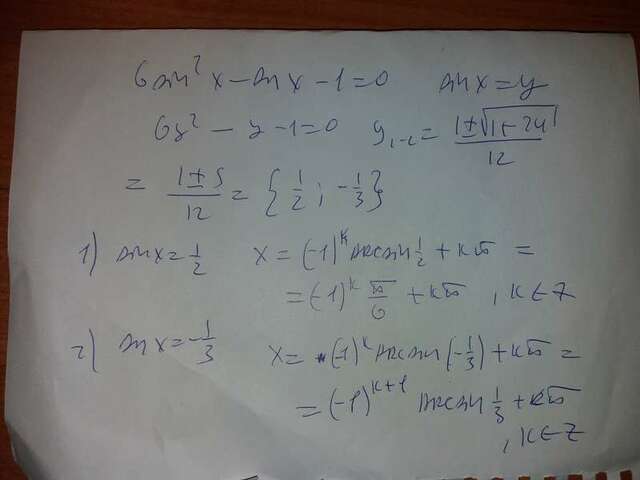 6sin²x - sinx - 1 = 0    sinx = y
6y² - y - 1 = 0    y₁₋₂ = (1 ± √(1 + 24)) / 12
= (1 ± 5) / 12 = {1/2 ; -1/3}
1) sinx = 1/2    x = (-1)^k arcsin 1/2 + kπ =
= (-1)^k π/6 + kπ , k ∈ Z
2) sinx = -1/3    x = (-1)^k arcsin(-1/3) + kπ =
= (-1)^(k+1) arcsin 1/3 + kπ
, k ∈ Z